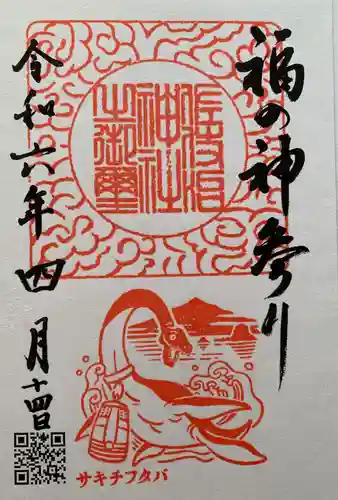 福の神参り
令和六年四月十四日
神社
之御璽
サキチフタバ